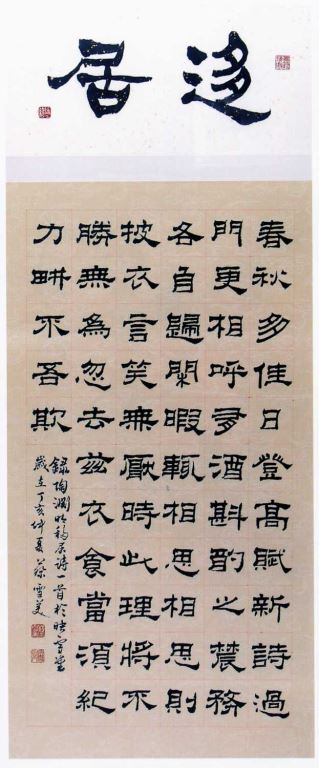 迻居
春秋多佳日登高賦新詩過
門更相呼有酒斟酌之農務
各自歸閑暇輒相思相思則
披衣言笑無厭時此理將不
勝無為忽去茲衣食當須紀
力畊不吾欺
錄陶淵明移居詩一首於映雪堂
歲在丁亥仲夏 蔡雪美